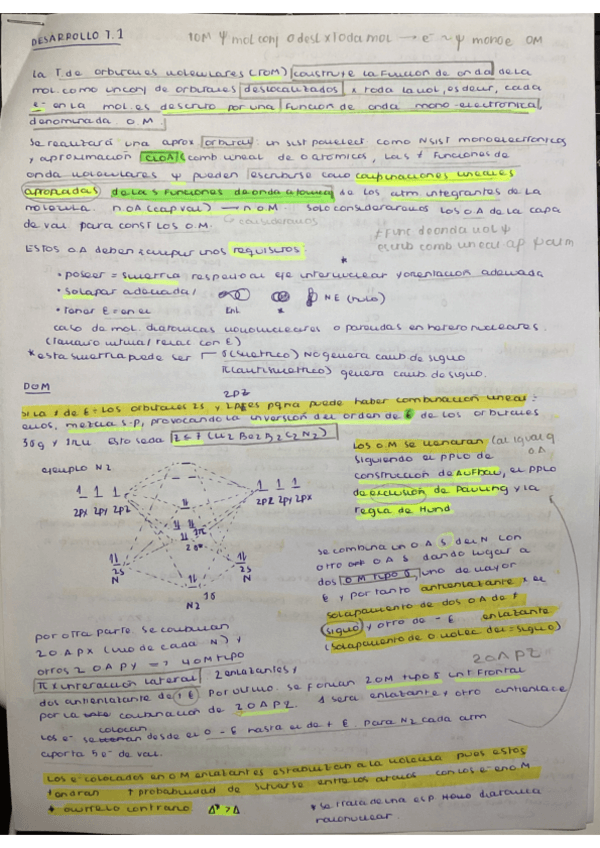 DESARROLLO T.1
TOM ψ mol conj O desl x toda mol → e⁻ ~ ψ mono e OM
La T de orbitales moleculares (TOM) construye la función de onda de la
mol. como un conj de orbitales deslocalizados x toda la mol, es decir, cada
e⁻ en la mol. es descrito por una función de onda mono-electronica,
denominada O.M
Se realizará una aprox orbital: un sist polielect como N sist monoelectronicos
y aproximación CLOA (comb lineal de O atómicos, las ≠ funciones de
onda moleculares ψ pueden escribirse como combinaciones lineales
apropiadas de las funciones de onda atómica de los atm integrantes de la
molécula. n OA (cap val) → n OM. Solo consideraremos los OA de la capa
de val para const los OM.
consideramos
≠ func de onda mol ψ
escrib comb lineal ap ψ atm
Estos OA deben cumplir unos requisitos:
• poseer = simetría respecto al eje internuclear y orientación adecuada
*
• Solapar adecuada/
Enl. * NE (nulo)
• Tener E = en el
caso de mol. diatómicas homonucleares o parecidas en heteronucleares.
*esta simetría puede ser σ (simétrico) No genera camb de signo
π (antisimétrico) genera camb de signo.
DOM
2pz
Si la ≠ de E entre los orbitales 2s y 2pz es pqña puede haber combinación lineal ÷
ellos, mezcla s-p, provocando la inversión del orden de E de los orbitales
3σg y 1πu Esto se da Z ≤ 7 (Li2 Be2 B2 C2 N2)
Los O.M se llenarán (al igual q
OA
siguiendo el ppio de
construcción de Aufbau, el ppio
de exclusión de Pauling y la
regla de Hund
ejemplo N2
1 1 1
2px 2py 2pz
1 1 1
2pz 2py 2px
2s
N
2s
N
N2
1σ
Se combina un OA s del N con
otro OA s dando lugar a
dos OM tipo σ, uno de mayor
E y por tanto antienlazante x el
solapamiento de dos OA de ≠
signo y otro de - E enlazante
(solapamiento de O molec del = signo)
por otra parte se combinan
2 OA PX (uno de cada N) y
otros 2 OA PY => 4 OM tipo
π x interacción lateral 2 enlazantes y
dos antienlazante de + E. Por último. se forman 2 OM tipo σ int frontal
2 OA PZ
por la combinación de 2 OA PZ. 1 será enlazante y otro antienlace
colocan
Los e⁻ se desde el O - E hasta el de + E. Para N2 cada atm
aporta 5 e⁻ de val.
Los e⁻ colocados en OM enlazantes estabilizan a la molécula pues estos
tendrán ↑ probabilidad de situarse entre los átomos con los e⁻ en O.M
* ocurre lo contrario Δ* > Δ
* se trata de una esp homo diatómica